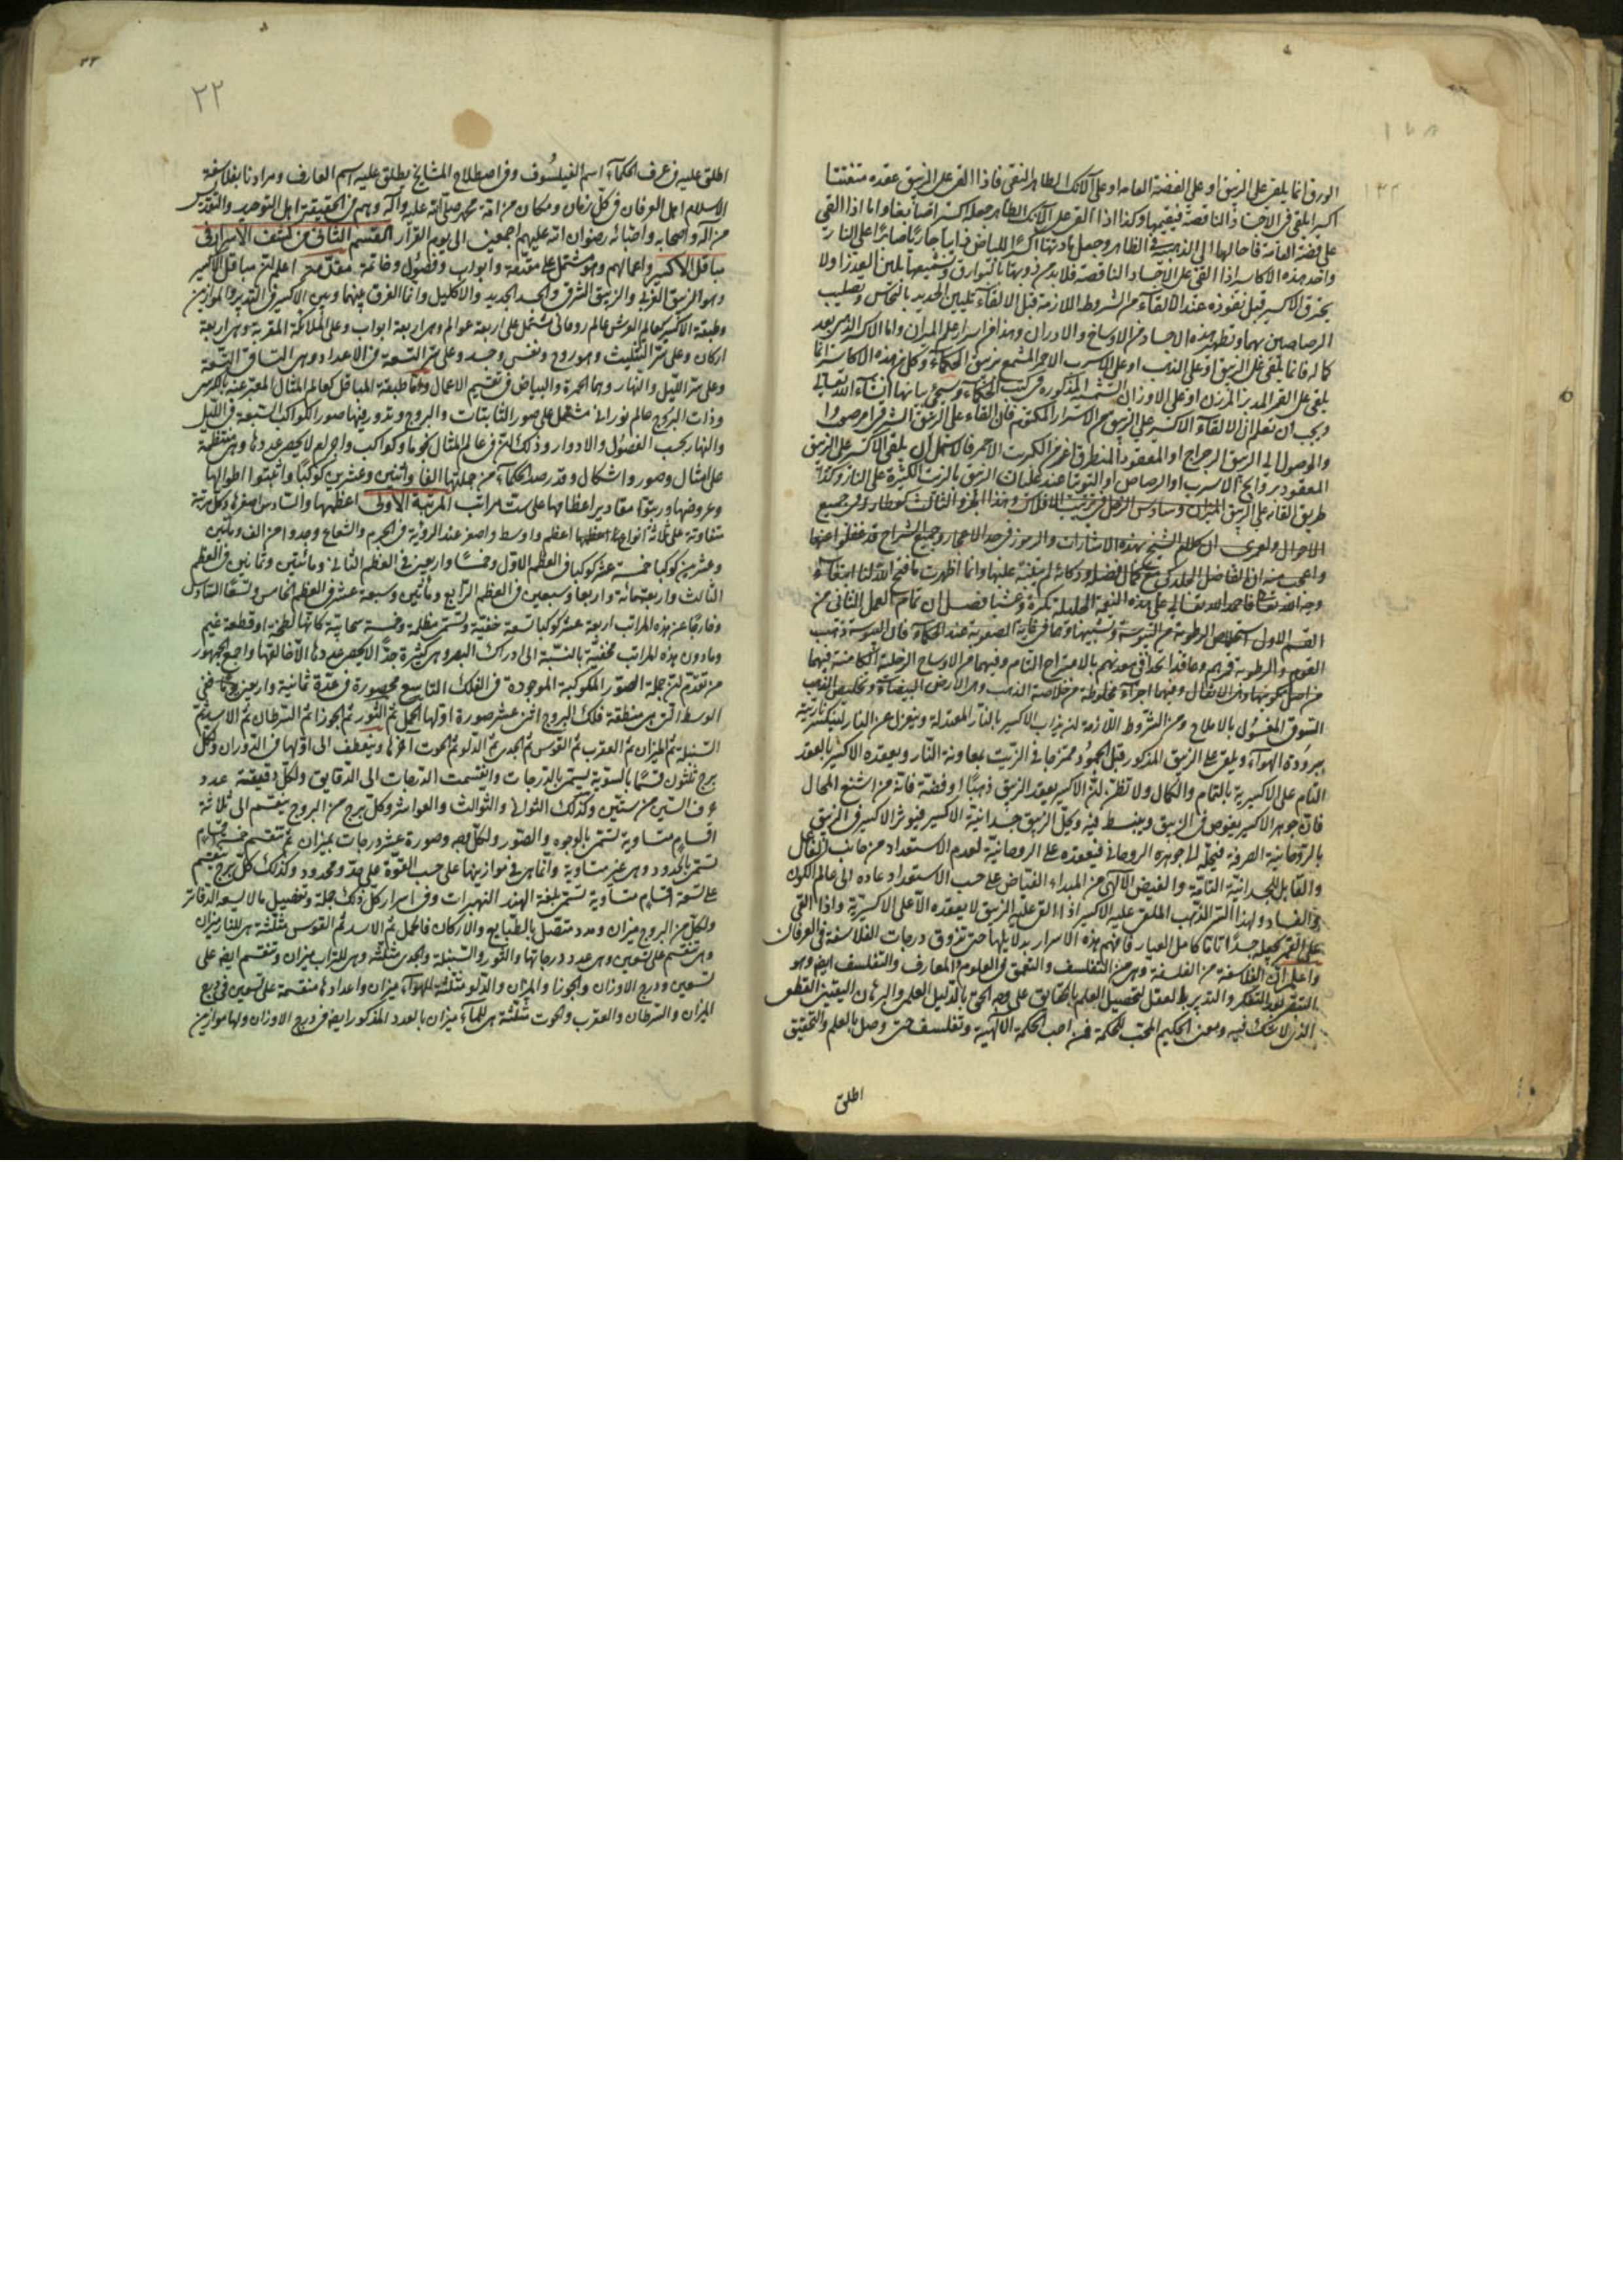 الورق انما يلقى على الزيبق او على الفضة العامه او على الآنك الطاهر النقى فاذا القى على الزيبق عقده متفتتا
اكسيرا يلقى فى الاجساد الناقصة فيقيمها وكذا اذا القى على الآنك الطاهر جعله اكسيرا ايضا واما اذا القى
على فضة العامة فاحالها الى الذهبية فى الظاهر وجعل مادتها اكسيرا للبياض ذايبا جاريا صابرا على النار
واحد هذه الاكاسير اذا القى على الاجساد الناقصة فلا بد من ذوبها
يحترق الاكسير قبل نفوذه عند الالقاء من الشروط اللازمة قبل الالقاء تليين الحديد بالنحاس وتصليب
الرصاصين بهما وتطهير هذه الاجساد من الاوساخ والادران وهذا من اسرار علم الميزان واما الاكسير
كماله فانما يلقى على الزيبق او على الذهب او على الاسرب الاحمر المشمع بزيبق الحكماء وكل من هذه الاكاسير انما
يلقى على القمر المدبر المرزن او على الاوزان الستة المذكوره فى كتب الحكماء وسيجئ بيانها انشاء الله تعالى
ويجب ان تعلم ان الالقاء الاكسير على الزيبق من الاسرار المكتومة فان القاءه على الزيبق الشرقى امر
والوصول الى الزيبق الرجراج او المعقود المنطرق اعز من الكبريت الاحمر فالاسهل ان يلقى الاكسير على الزيبق
المعقود بروايح الاسرب او الرصاص او التوتيا عند غليان الزيبق بالزيت الكثيرة على النار وكذا
طريق القائه على الزيبق الميزان وسادس الزحل فى ترتيب الافلاك وهذا الجزو الثالث كعطارد فى جميع
الاحوال ولعمرى ان كلام الشيخ بهذه الاشارات والرموز فى حد الاعجاز وجميع الشراح قد غفلوا عنها
واعجب منه ان الفاضل الجلدكى مع كمال الفضل وذكائه لم يتنبه عليها وانما اظهرت ما فتح الله لنا ابتغاء
وجه الله تعالى فاحمد الله تعالى على هذه النعمة الجليلة بكرة وعشيا فصل ان تمام العمل الثانى من
القسم الاول استخلاص الرطوبة من اليبوسة وتسبيبها وهما فى غاية الصعوبة عند الحكماء فان اليبوسة ذهب
القوم والرطوبة قمرهم وعاقد اتحدا فى معدنهم بالامتزاج التام وفيهما من الاوساخ الزحلية الكامنة فيهما
من اصل تكونهما ومن الاثقال وفيهما اجزاء مخلوطة من خلاصة الذهب وهى الارض البيضاء وتخليص الذهب
السوق المغسول بالاملاح ومن الشروط اللازمة ان يذاب الاكسير بالنار المعتدلة وينعزل عن النار لينكسر ناريته
ببرودة الهواء ويلقى على الزيبق المذكور قبل الجمود ممتزجا فى الزيت بمعاونة النار ويعقده الاكسير بالعقد
التام على الاكسيرية بالتمام والكمال ولا تظن ان الاكسير يعقد الزيبق ذهبا او فضة فانه من اشنع المحال
فان جوهر الاكسير يغوص فى الزيبق وينبسط فيه وكل الزيبق جسدانية الاكسير فيوثر الاكسير فى الزيبق
بالروحانية الصرفة فيحله الى جوهره الروحانى فيعقده على الروحانية لعدم الاستعداد من جانب الفاعل
والقابل الجسدانية التامة والفيض الآلهى من المبداء الفياض على حسب الاستعداد عاده الى عالم الكون
والفساد ولهذا السر الذهب الملقى عليه الاكسير اذا القى على الزيبق لا يعقده الا على الاكسيرية واذا القى
على القمر يجعله جسدا تاما كامل العيار فافهم هذه الاسرار بدلايلها حتى تذوق درجات الفلاسفة فى العرفان
واعلم ان الفلاسفة من الفلسفة وهى من التفلسف والتعمق فى العلوم والمعارف والتفلسف ايضا وهو
التفكر والتدبر بطه لعقل لتحصيل العلم بالحقايق على وجه الحق بالدليل العلمى والبرهان اليقينى القطعى
الذى لا شك فيه ومعنى الحكيم المحب للحكمة فمن احب الحكمة الالهية وتفلسف حتى وصل بالعلم والتحقيق
اطلق
٢٢
اطلق عليه فى عرف الحكماء اسم الفيلسوف وفى اصطلاح المشايخ يطلق عليه اسم العارف ومرادنا بفلاسفة
الاسلام اهل العرفان فى كل زمان ومكان من امة محمد صلى الله عليه وآله وهم فى الحقيقة اهل التوحيد والتقديس
من آله واصحابه واحبائه رضوان الله عليهم اجمعين الى يوم القرار القسم الثانى من كشف الاسرار فى
مباقل الاكسير واعمالهم وهو مشتمل على مقدمة وابواب وفصول وخاتمة مقدمه اعلم ان مباقل الاكسير
وهو الزيبق الغربى والزيبق الشرقى والجسد الجديد والاكليل وانما الفرق بينهما وبين الاكسير فى التدبير والموازين
وطبيعة الاكسير كعالم العرش عالم روحانى مشتمل على اربعة عوالم وهى اربعة ابواب وعلى الملائكة المقربة وهى اربعة
اركان وعلى سر التثليث وهو روح ونفس وجسد وعلى سر التسعة من الاعداد وهى التساقى التسعة
وعلى سر الليل والنهار وهما الحمرة والبياض فى تقسيم الاعمال واما طبيعة المباقل كعالم المثال المعبر عنه بالكرسى
وذات البروج عالم نورانى مشتمل على صور الثابتات والبروج وتدوير فيها صور الكواكب السبعة فى الليل
والنهار بحسب الفصول والادوار وذلك ان فى عالم المثال نجوما وكواكب واجرام لا يحصر عددها وهى منتظمة
على امثال وصور واشكال وقد رصد الحكماء من جملتها الفا واثنين وعشرين كوكبا واثبتوا اطوالها
وعروضها ورتبوا مقادير اعظامها على ست مراتب المرتبة الاولى اعظمها والسادس اصغرها وكل مرتبة
متفاوتة على ثلاثة انواع اعظمها اعظم واوسط واصغر عند الرؤية فى الجرم والشعاع وجدوا من الف واثنين
وعشرين كوكبا خمسة عشر كوكبا فى العظم الاول وخمسا واربعين فى العظم الثانى ومائتين وثمانين فى العظم
الثالث واربعمائة واربعا وسبعين فى العظم الرابع ومائتين وسبعة عشر فى العظم الخامس وتسعا السادس
وخارجا عن هذه المراتب اربعة عشر كوكبا تسعة خفية وتسمى مظلمة وخمسة سحابية كانها لطخة او قطعة غيم
وما دون هذه المراتب مخفية بالنسبة الى ادراك البصر وهى كثيرة جدا لا يحصر عددها الا خالقها واجمع الجمهور
من تقدم ان جملة الصور الكوكبية الموجودة فى الفلك التاسع محصورة فى عدة ثمانية واربعين صورة فى
الوسط التى هى منطقة فلك البروج اثنى عشر صورة اولها الحمل ثم الثور ثم الجوزا ثم السرطان ثم الاسد ثم
السنبلة ثم الميزان ثم العقرب ثم القوس ثم الجدى ثم الدلو ثم الحوت اخرها وينعطف الى اولها فى الدوران وكل
برج ثلثون قسما بالسوية يسمى بالدرجات وانقسمت الدرجات الى الدقايق ولكل دقيقة عدد
من الستين وكذلك الثوانى والثوالث والعواشر وكل برج من البروج ينقسم الى ثلاثة
اقسام متساوية تسمى بالوجوه والصور ولكل وجه وصورة عشر درجات بميزان ثم تنقسم خمسة اقسام
تسمى بالحدود وهى غير متساوية وانما هى فى موازينها على حسب القوة على حد ومحدود وكذلك كل برج ينقسم
على تسعة اقسام متساوية تسمى بلغة الهند النهبرات وفى اسرار كل ذلك جملة وتفصيل ما لا يسعه الدفاتر
ولكل من البروج ميزان وعدد متصل بالطبايع والاركان فالحمل ثم الاسد ثم القوس مثلثة هى للنار ميزان
وهى تنقسم على تسعين وهى عدد درجاتها والثور والسنبلة والجدى مثلثه وهى للتراب ميزان وتنقسم ايضا على
تسعين ودرج الاوزان والجوزا والميزان والدلو مثلثة للهواء ميزان واعدادها منقسمة على تسعين فى ربع
الميزان والسرطان والعقرب والحوت مثلثة هى للماء ميزان بالعدد المذكور ايضا فى درج الاوزان ولها موازين